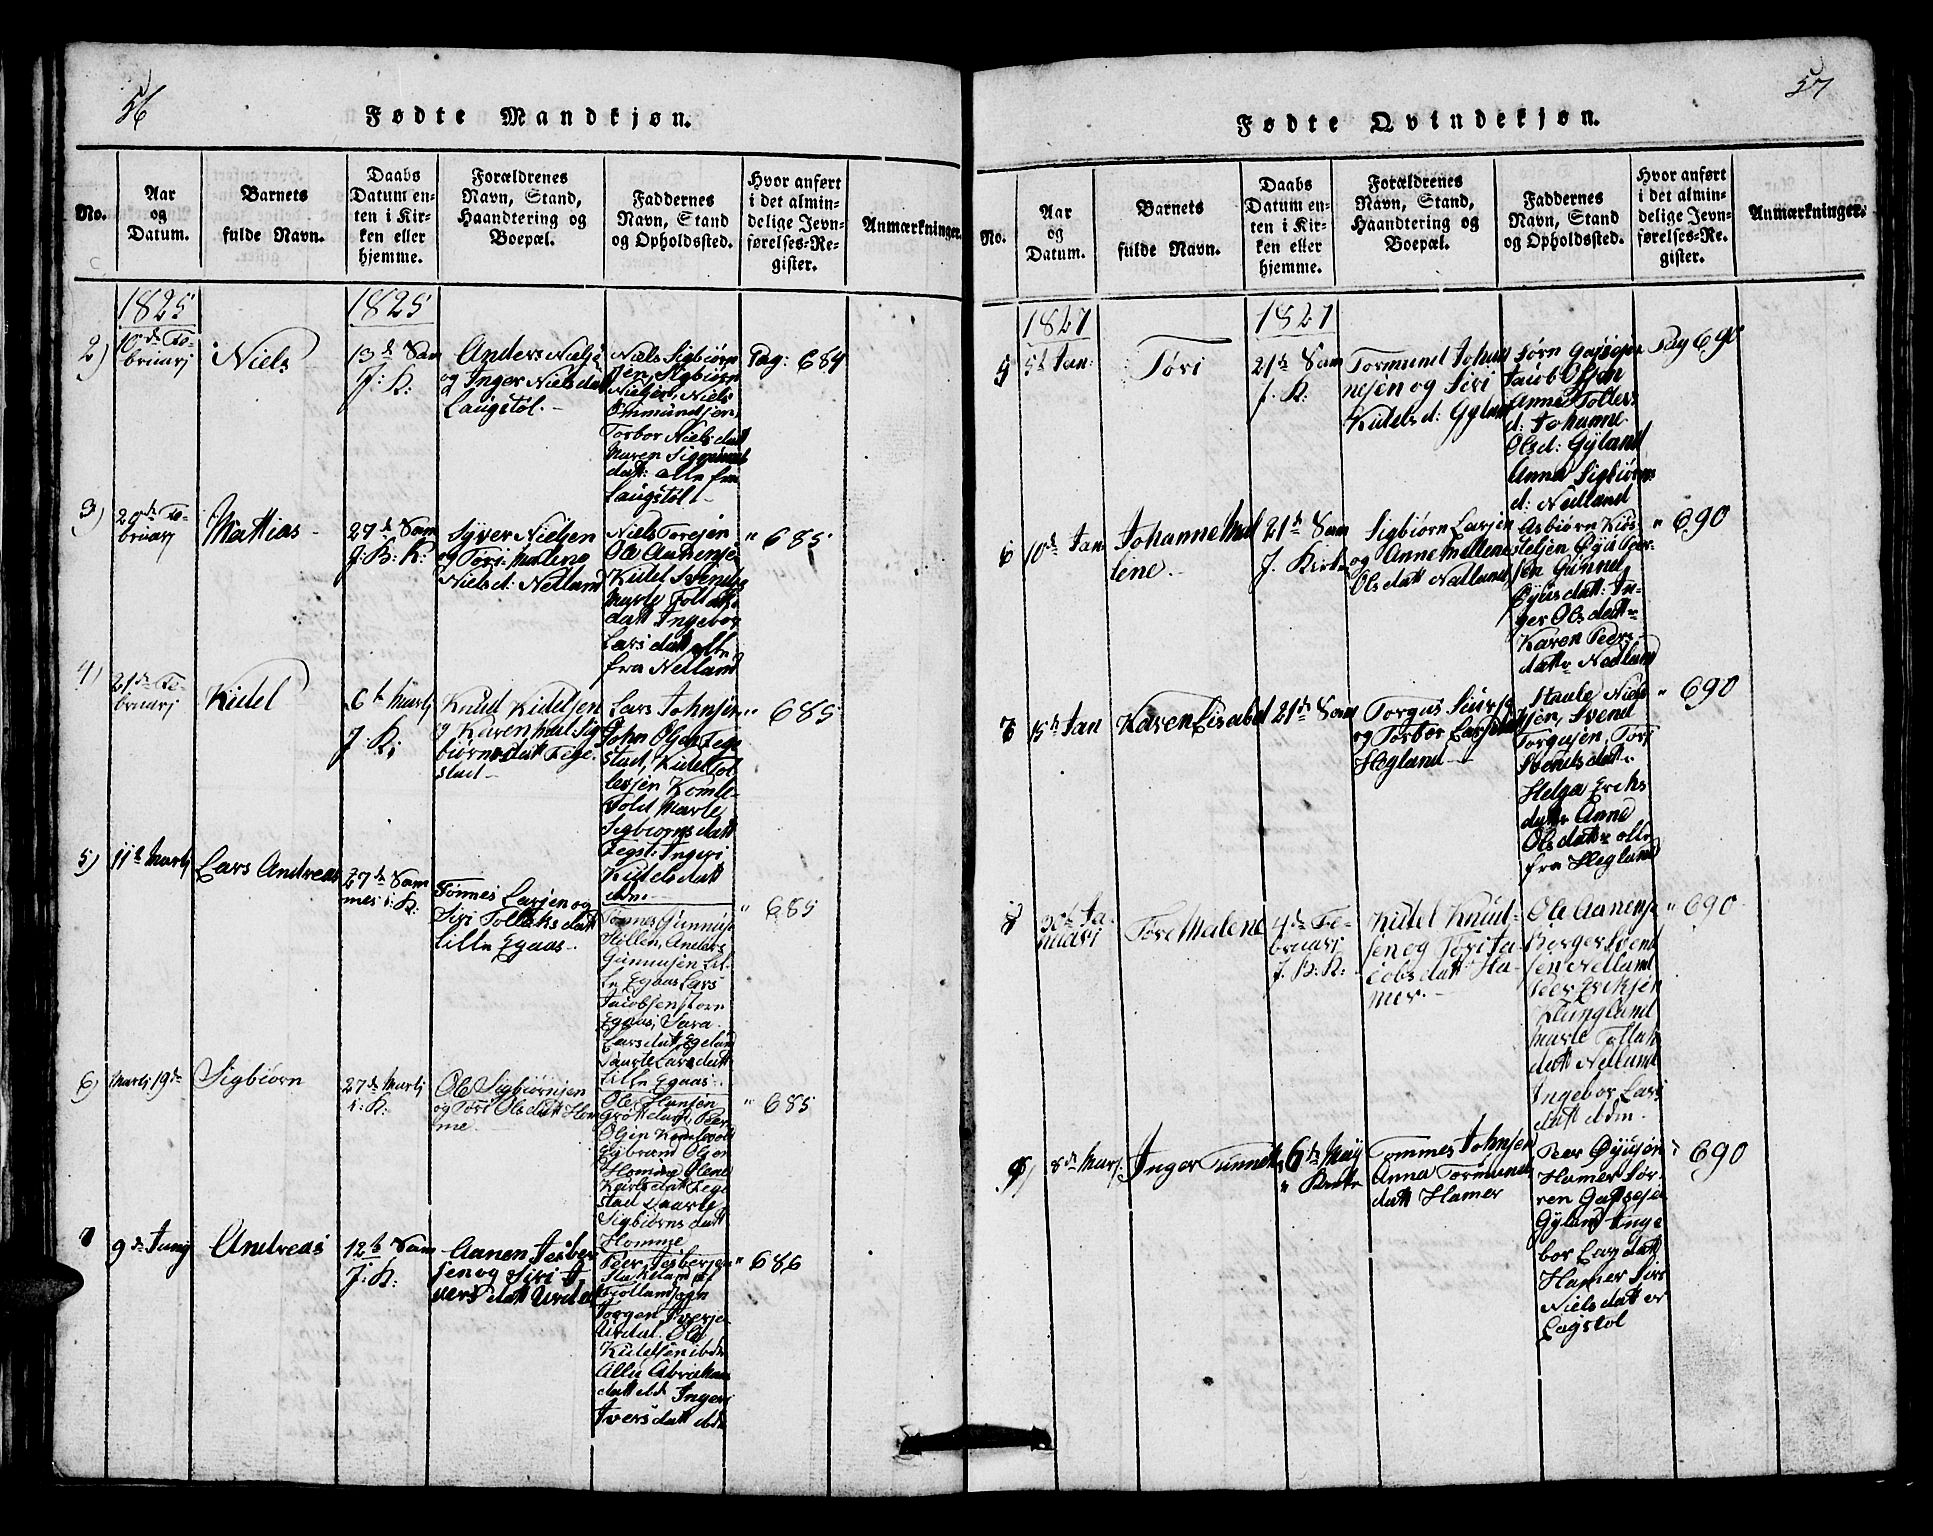 56
Fødte Mandkjøn.
No.
Aar
og
Datum.
Barnets
fulde Navn.
Daabs
Datum en-
ten i Kir-
ken eller
hjemme.
Forældrenes
Navn, Stand,
Haandtering og
Boepæl.
Faddernes
Navn, Stand
og Opholdssted.
Hvor anført
i det almin-
delige Jevn-
førelses-Re-
gister.
Anmærkninger.
1825
1825
2)
10de Fe-
bruarj
Niels
13de Sam
J: K:
Anders Nielse
og Inger Nielsdatt
Laugstøl.
Niels Sigbiørn
sen, Sigbiørn
Nielsen, Niels
Ommundsen,
Torbor Nielsdatt
Maren
datt: alle fra
Laugstøl
Pag: 684
3)
20de Fe-
bruarj
Mathias
27de Sam
J: B: K:
Syver Nielsen
og Tori Malene
Nielsd: Nelland
Niels Toresen
Ole Aanensen
Kidel Svends
Marte Tollak
datt Ingebor
Larsdatt alle
fra Nelland
" 685
4)
21de Fe-
bruarj
Kidel
6te Martj
J. K:
Knud Kidelsen
og Karen Sig
biørnsdatt Fege-
stad
Lars Johnsen
John Olsen Feg
stad, Kidel Tol
lefsen Komle-
vold Marte
Sigbiørnsdatt
Fegst: Ingeri
Kidelsdatt
ibdm
" 685
5)
11te Martj
Lars Andreas
27de Sam
mes i: K:
Tønnes Larsen og
Siri Tollaksdatt
Lille Egaas.
Tønnes Gunnus
Hillen, Anders
Gunnusen Lil-
le Egaas Lars
Jacobsen store
Egaas, Sara
Larsdatt Egeland
Larsdatt
Lille Egaas.
" 685
6)
Martj 19de
Sigbiørn
27de Martj
i: K:
Ole Sigbiørnsen
og Tori Olsdatt Hom
me
Ole Hansen
Peer
Olsen Komlevold
Olsen
Homme Olene
Karlsdatt Fege
stad
Sigbiørnsdatt
Homme
" 685
7
9de Junj
Andreas
12te Sam
J: K:
Aanen Jesber
sen og Siri I-
versdatt Urdal
Peer Jesbersen
Jørgen Iverse
Urdal. Ole
Kidelsen ibdm
datt ibd: Ingeri
Iversdatt ibdm
" 686
57
Fødte Qvindekjøn.
No.
Aar
og
Datum.
Barnets
fulde Navn.
Daabs
Datum en-
ten i Kir-
ken eller
hjemme.
Forældrenes
Navn, Stand,
Haandtering og
Boepæl.
Faddernes
Navn, Stand
og Opholdssted.
Hvor anført
i det almin-
delige Jevn-
førelses-Re-
gister.
Anmærkninger.
1827
1827
5
5te Jan:
Tøri
21de Sam
J. K:
Tormund Johan
nesen og Siri
Kidelsd: Gyland
Sørn
Jacob Olsen
Anne Tolles
d: Johanne
Olsd: Gyland
Anna Sigbiørns
d: Nedland
Pag 690
6
10de Jan
Johanne Mal
lene.
21de Sam
J. Kirke
Sigbiørn Larsen
og Anne Mallene
Olsdatt Nedland
Asbiørn Kiøs-
telsen Øyu Peer-
sen Gunnel
Øyusdatt: In-
ger Olsdatt
Karen Peers-
datt Nedland
" 690
7
15de Jan
Karen Lisabet
21de Sam
Torgus Siurs
og Torbor Larsdatt
Hegland
Staale Niel
sen, Svend
Torgusen, Tori
Svendsdatt
Helga Eriks
datt Anne
Olsdatt alle
fra Hegland
" 690
8
30te Ja-
nuari
Tore Malene
4de Fe-
bruarj
J: K: K:
Kidel Knud-
sen og Tori Ja-
cobsdatt Ha-
mer.
Ole Aanense
Borger Svend
sen Nelland
Peer Eriksen
Lungland
Marte Tollak
datt Nelland
Ingebor Lars
datt ibdm.
" 690
9)
8de Marj:
Inger Tunnette
6te May
" Kirke
Tommes Johnsen
Anna Tormunds
datt Hamer
Peer Øyusen
Hamer Sør-
ren
Gyland Inge
bor Larsdatt
Hamer Siri
Nielsdatt
Lagstøl
" 690